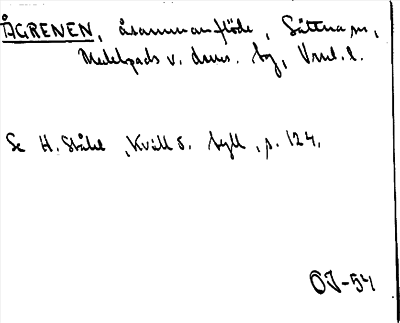 ÅGRENEN, åsammanflöde, Sättna sn,
Medelpads v. doms. bg, Vnrl. l.
Se H. Ståhl, Kvill o. byll, p. 124.
OJ-54